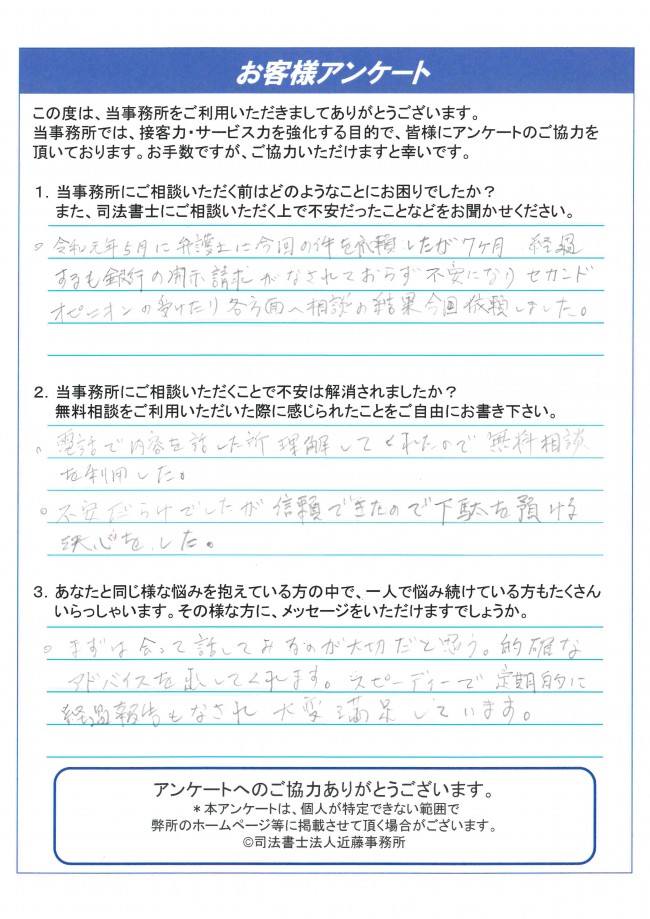 お客様アンケート
この度は、当事務所をご利用いただきましてありがとうございます。
当事務所では、接客力・サービス力を強化する目的で、皆様にアンケートのご協力を
頂いております。お手数ですが、ご協力いただけますと幸いです。
1．当事務所にご相談いただく前はどのようなことにお困りでしたか？
また、司法書士にご相談いただく上で不安だったことなどをお聞かせください。
○ 令和元年5月に弁護士に今回の件を依頼したが7ヶ月 経過
するも銀行の開示請求がなされておらず不安になりセカンド
オピニオンの受けたり各方面へ相談の結果今回依頼しました。
2．当事務所にご相談いただくことで不安は解消されましたか？
無料相談をご利用いただいた際に感じられたことをご自由にお書き下さい。
○ 電話で内容を話した所 理解してくれたので 無料相談
を利用した。
○ 不安だらけでしたが 信頼できたので下駄を預ける
決心をした。
3．あなたと同じ様な悩みを抱えている方の中で、一人で悩み続けている方もたくさん
いらっしゃいます。その様な方に、メッセージをいただけますでしょうか。
○ まずは会って話してみるのが大切だと思う。的確な
アドバイスを出してくれます。スピーディーで定期的に
経過報告もなされ 大変満足しています。
アンケートへのご協力ありがとうございます。
＊本アンケートは、個人が特定できない範囲で
弊所のホームページ等に掲載させて頂く場合がございます。
©司法書士法人近藤事務所